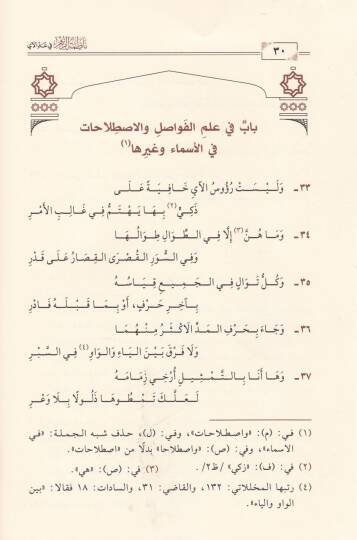 ناظمة الزهر في عد الآي
٣٠
بابٌ في علمِ الفَواصلِ والاصطِلاحات
في الأسماء وغيرِها(١)
٣٣ـ وَلَيْسَتْ رُؤُوسُ الآيِ خَافِيَةً عَلَى
ذَكِيٍّ(٢) بِهَا يَهْتَمُّ فِي غَالِبِ الأَمْرِ
٣٤ـ وَمَا هُنَّ(٣) إِلَّا فِي الطِّوَالِ طِوَالُهَا
وَفِي السُّوَرِ القُصْرَى القِصَارُ عَلَى قَدْرِ
٣٥ـ وَكُلُّ تَوَالٍ فِي الجَمِيعِ قِيَاسُهُ
بِآخِرِ حَرْفٍ، أَوْ بِمَا قَبْلَهُ فَادْرِ
٣٦ـ وَجَاءَ بِحَرْفِ المَدِّ الاكْثَرُ مِنْهُمَا
وَلَا فَرْقَ بَيْنَ اليَاءِ وَالوَاوِ(٤) فِي السَّبْرِ
٣٧ـ وَهَا أَنَا بِالتَّمْثِيلِ أُرْخِي زِمَامَهُ
لَعَلَّكَ تَمْطُوهَا ذَلُولًا بِلَا وَعْرِ
(١) في: (م): «واصطلاحات»، وفي: (ل)، حذف شبه الجملة: «في
الأسماء»، وفي: (ص): «واصطلاحا» بدلًا من «اصطلاحات».
(٢) في: (ف): «زكي» /ظ٢/. (٣) في: (ص): «هي».
(٤) رتبها المخللاتي: ١٣٢، والقاضي: ٣١، والسادات: ١٨ فقالا: «بين
الواو والياء».